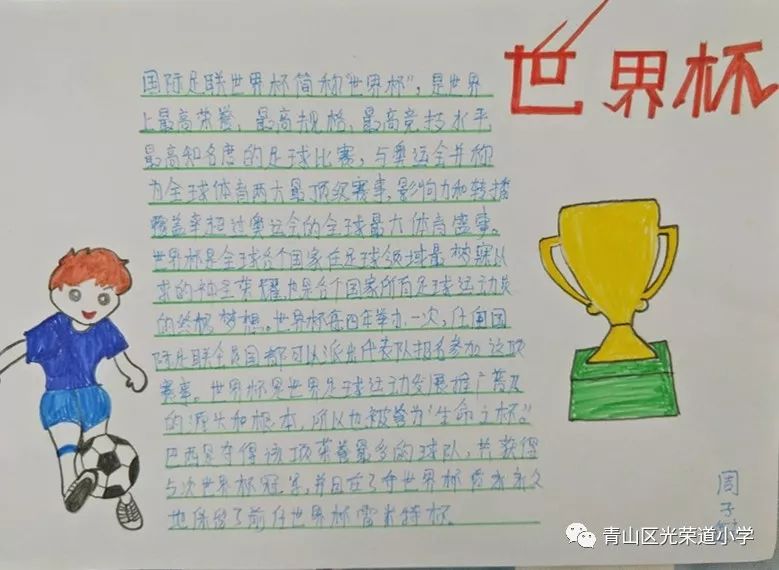 世界杯
国际足联世界杯简称"世界杯"，是世界
上最高荣誉，最高规格，最高竞技水平
最高知名度的足球比赛，与奥运会并称
为全球体育两大最顶级赛事，影响力和转播
覆盖率超过奥运会的全球最大体育盛事。
世界杯是全球各个国家在足球领域最梦寐以
求的神圣荣耀，也是各个国家所有足球运动员
的终极梦想。世界杯每四年举办一次，任何国
际足联会员国都可以派出代表队报名参加这项
赛事。世界杯是世界足球运动发展推广普及
的源头和根本，所以也被誉为"生命之杯"。
巴西是夺得该项荣誉最多的球队，共获得
5次世界杯冠军，并且在3夺世界杯后永久
地保留了前任世界杯雷米特杯。
周
子
青山区光荣道小学